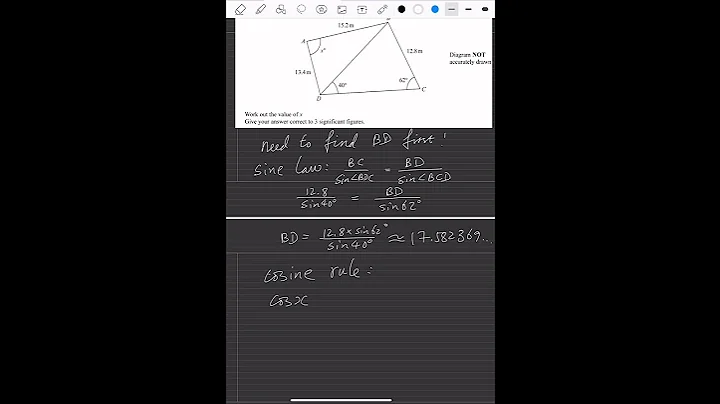 15.2m
A
x°
12.8m
Diagram NOT
accurately drawn
13.4m
40°
62°
C
D
Work out the value of x
Give your answer correct to 3 significant figures.
need to find BD first!
Sine Law: BC/sin∠BDC = BD/sin∠BCD
12.8/sin40° = BD/sin62°
BD = 12.8×sin62°/sin40° ≈ 17.582369...
Cosine rule:
cosx